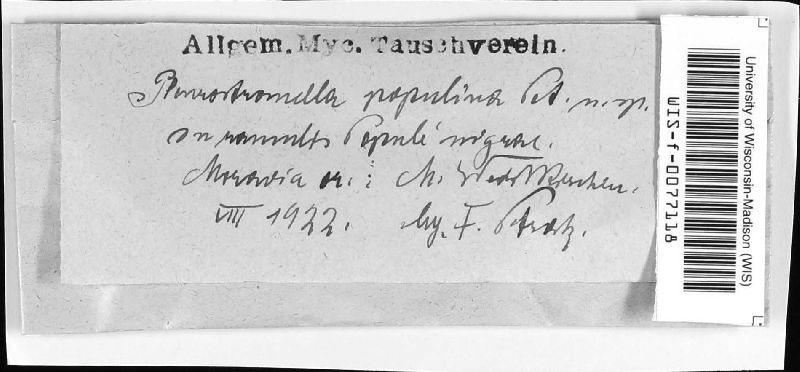 Allgem. Myc. Tauschverein.
Pleurostromella populina Pet. n. sp.
in ramulis Populi nigrae.
Moravia or.: M. Weißkirchen.
VIII 1922. lg. F. Petrak.
University of Wisconsin-Madison (WIS)
WIS-f-0077118